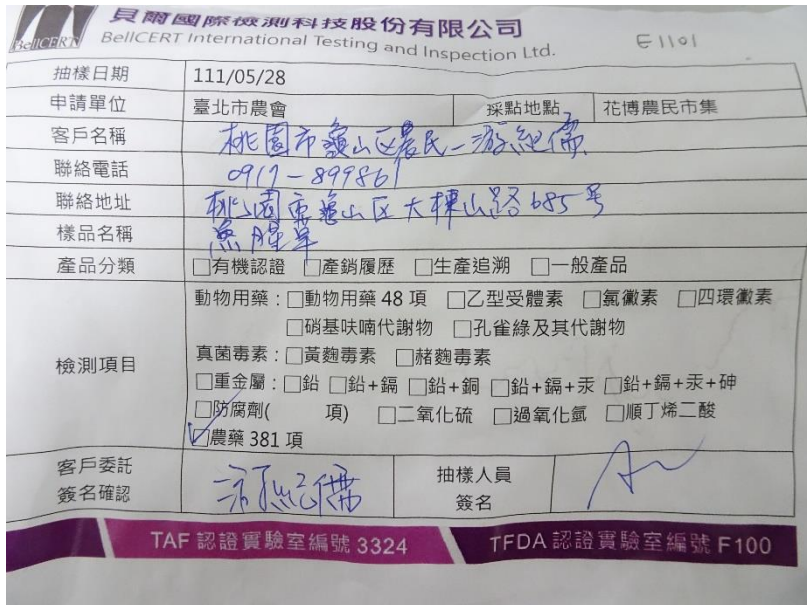 貝爾國際檢測科技股份有限公司
BellCERT
BellCERT International Testing and Inspection Ltd.
E1101
抽樣日期 111/05/28
申請單位 臺北市農會 採點地點 花博農民市集
客戶名稱 桃園市龜山区農民-游經儒
聯絡電話 0917-899861
聯絡地址 桃園東龜山区大棟山路685号
樣品名稱 魚腥草
產品分類 □有機認證 □產銷履歷 □生產追溯 □一般產品
檢測項目
動物用藥:□動物用藥 48 項 □乙型受體素 □氯黴素 □四環黴素
□硝基呋喃代謝物 □孔雀綠及其代謝物
真菌毒素:□黃麴毒素 □赭麴毒素
□重金屬:□鉛 □鉛+鎘 □鉛+銅 □鉛+鎘+汞 □鉛+鎘+汞+砷
□防腐劑( 項) □二氧化硫 □過氧化氫 □順丁烯二酸
☑農藥 381 項
客戶委託
簽名確認
抽樣人員
簽名
TAF 認證實驗室編號 3324 TFDA 認證實驗室編號 F100